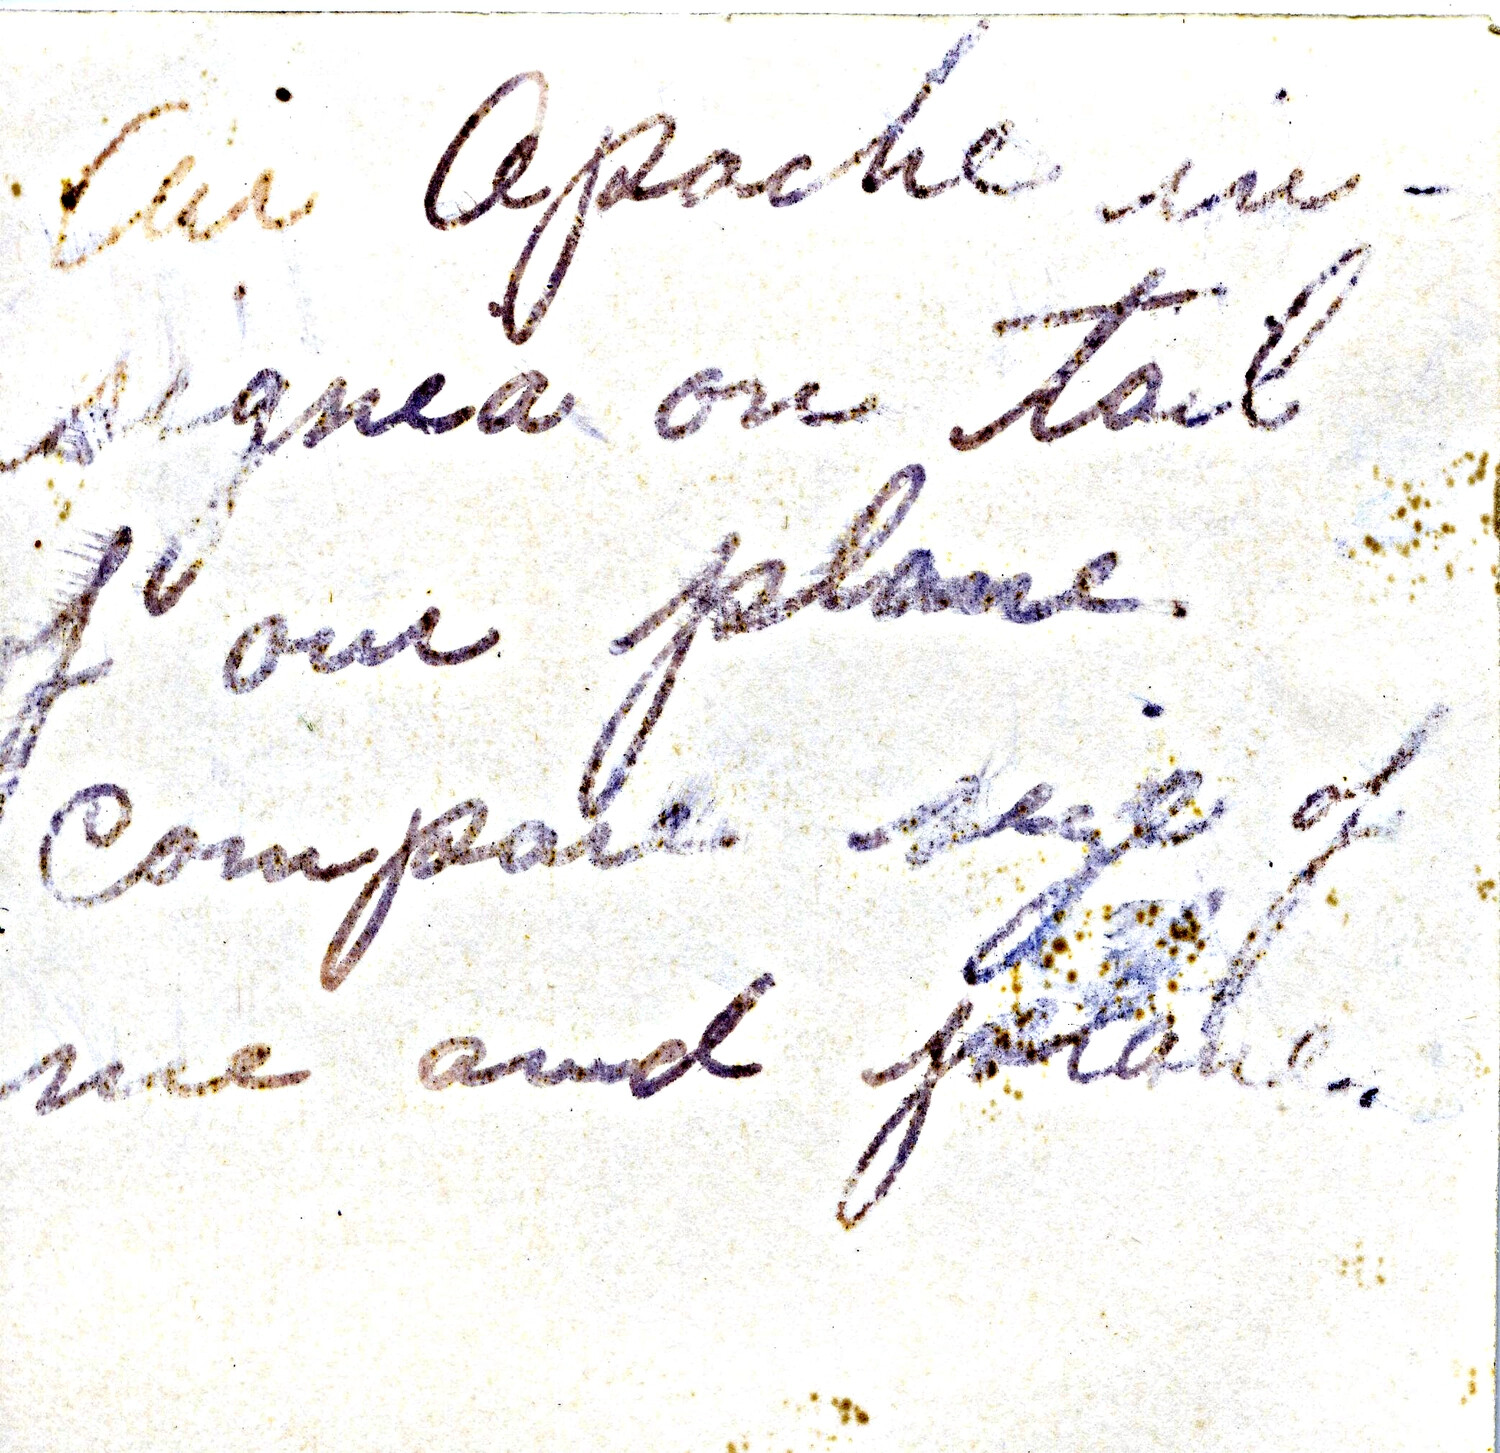 Air Apache in-
signea on tail
of our plane
Compare size of
me and plane.